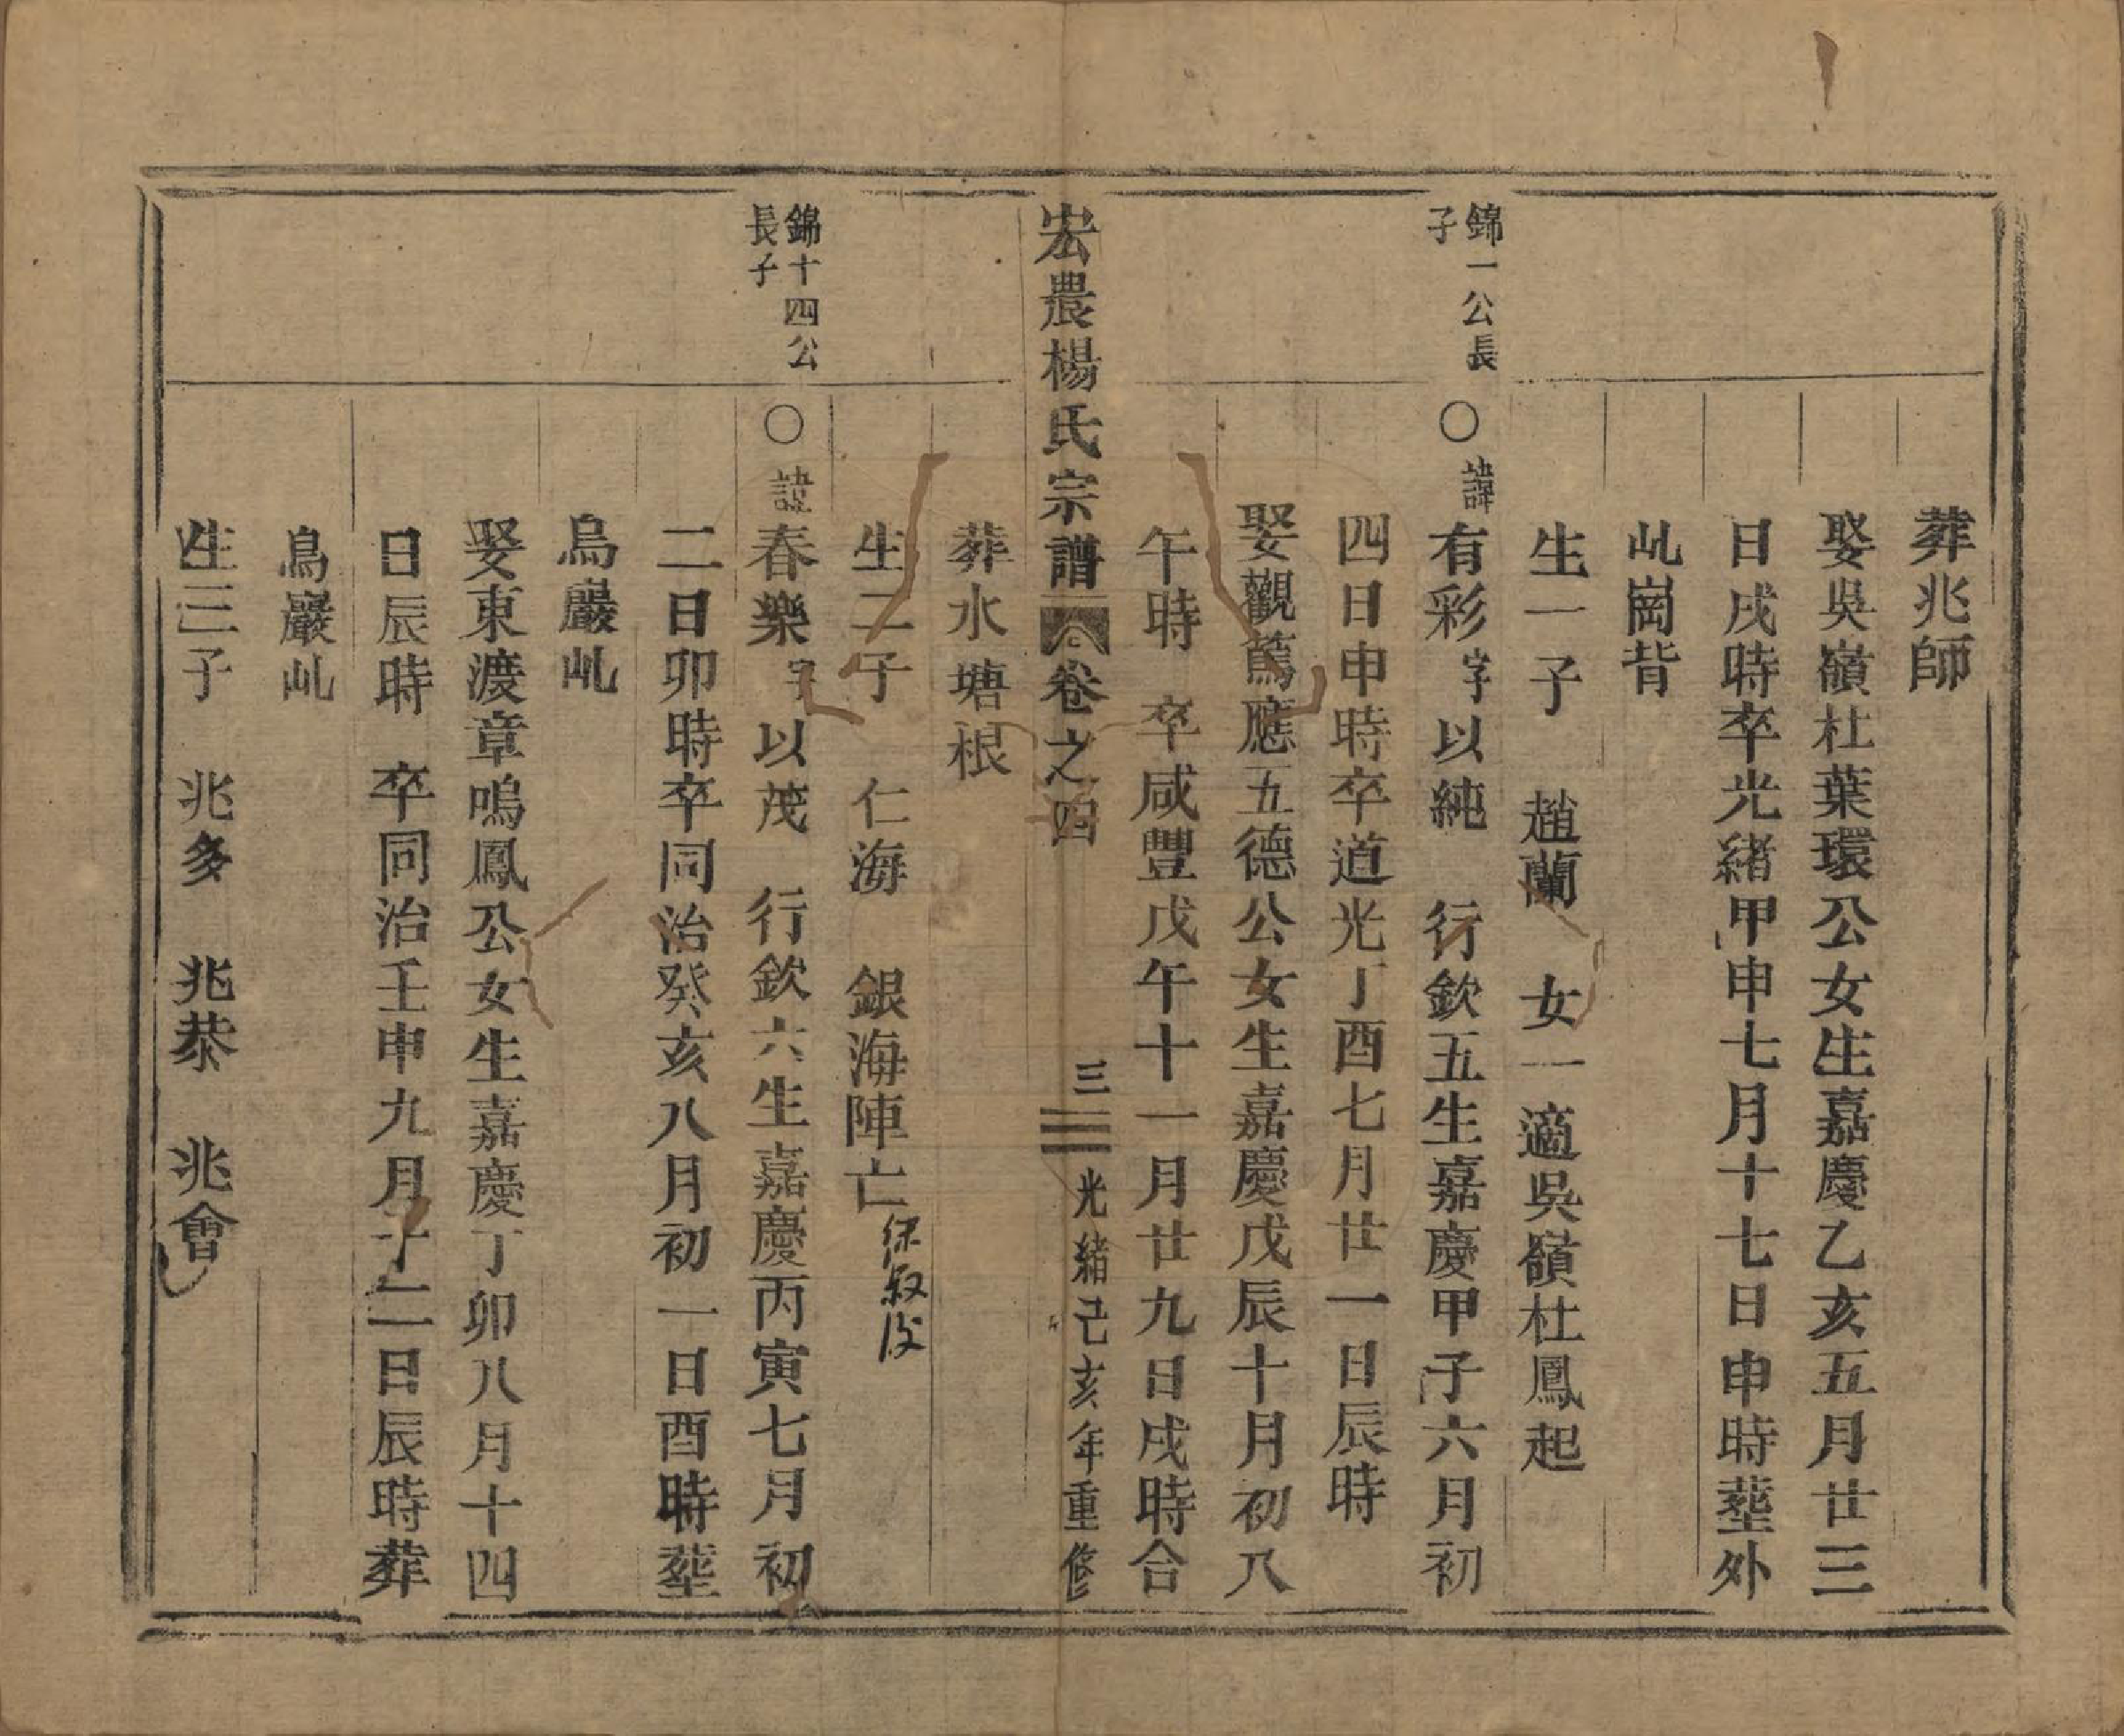 葬兆師
娶吳嶺杜葉環公女生嘉慶乙亥五月廿三
日戌時卒光緒甲申七月十七日申時塟外
乢崗背
生一子 趙蘭 女一適吳嶺杜鳳起
錦一公長
子
○諱有彩字以純 行欽五生嘉慶甲子六月初
四日申時卒道光丁酉七月廿一日辰時
娶觀蔦應五德公女生嘉慶戊辰十月初八
午時 卒咸豐戊午十一月廿九日戌時合
宏農楊氏宗譜 卷之四 三 光緒己亥年重修
葬水塘根
生二子 仁海 銀海陣亡
錦十四公
長子
○諱春樂字以茂 行欽六生嘉慶丙寅七月初
二日卯時卒同治癸亥八月初一日酉時塟
烏巖乢
娶東渡章鳴鳳公女生嘉慶丁卯八月十四
日辰時 卒同治壬申九月十二日辰時葬
烏巖乢
生三子 兆多 兆恭 兆會